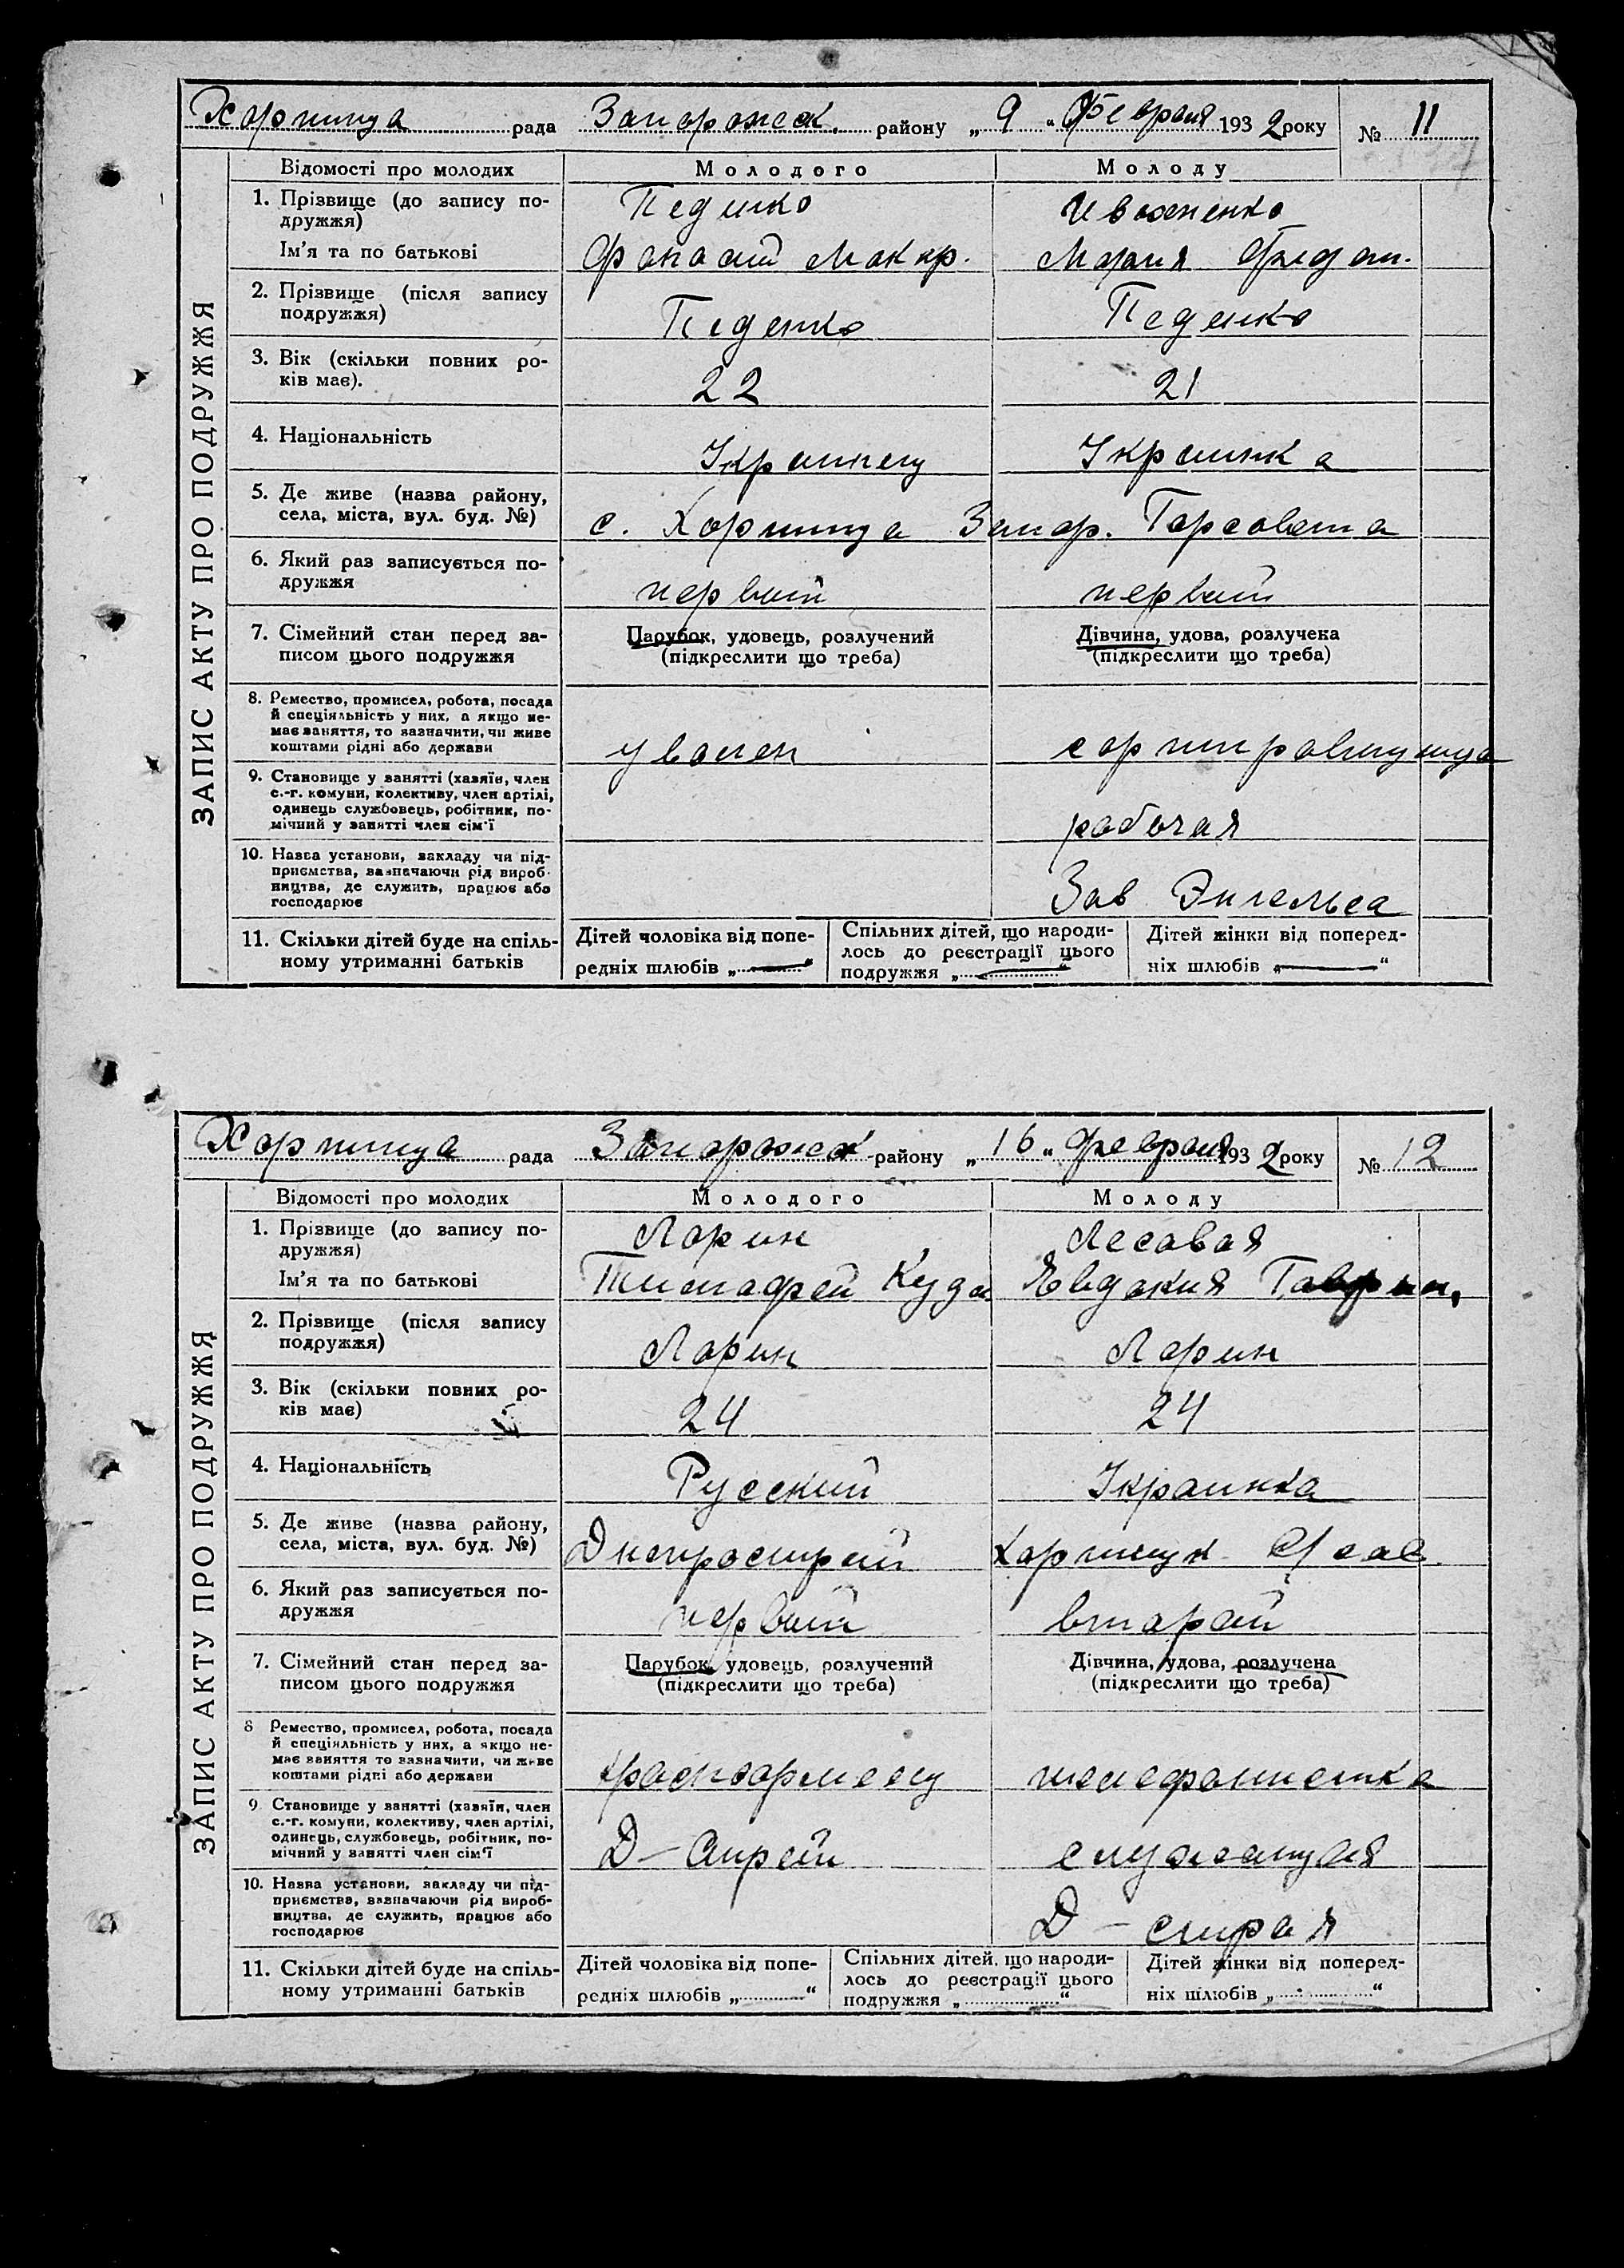 Хортица рада Запорожск. району „9“ Февраля 1932 року № 11
ЗАПИС АКТУ ПРО ПОДРУЖЖЯ
Відомості про молодих Молодого Молоду
1. Прізвище (до запису по-
дружжя) Педенко Ивахненко
Ім'я та по батькові Макар. Мария Федот.
2. Прізвище (після запису
подружжя) Педенко Педенко
3. Вік (скільки повних ро-
ків має). 22 21
4. Національність Украинец Украинка
5. Де живе (назва району,
села, міста, вул. буд. №) с. Хортица Запор. Горсовета
6. Який раз записується по-
дружжя первый первый
7. Сімейний стан перед за- Парубок, удовець, розлучений Дівчина, удова, розлучена
писом цього подружжя (підкреслити що треба) (підкреслити що треба)
8. Ремество, промисел, робота, посада
й спеціяльність у них, а якщо не-
має заняття, то зазначити, чи живе
коштами рідні або держави уволен сортировщица
9. Становище у занятті (хазяїн, член
с.-г. комуни, колективу, член артілі,
одинець службовець, робітник, по-
мічний у занятті член сім'ї рабочая
10. Назва установи, закладу чи під-
приємства, зазначаючи рід вироб-
ництва, де служить, працює або
господарює Зав Энгельса
11. Скільки дітей буде на спіль- Дітей чоловіка від попе- Спільних дітей, що народи- Дітей жінки від поперед-
ному утриманні батьків редніх шлюбів „—“ лось до реєстрації цього ніх шлюбів „—“
подружжя „—“
Хортица рада Запорожск району „16“ февраля 1932 року № 12
ЗАПИС АКТУ ПРО ПОДРУЖЖЯ
Відомості про молодих Молодого Молоду
1. Прізвище (до запису по-
дружжя) Ларин Лесовая
Ім'я та по батькові Тимофей Явдокия Гаврил.
2. Прізвище (після запису
подружжя) Ларин Ларин
3. Вік (скільки повних ро-
ків має) 24 24
4. Національність Русский Украинка
5. Де живе (назва району,
села, міста, вул. буд. №) Днепрострой Хортицк.
6. Який раз записується по-
дружжя первый второй
7. Сімейний стан перед за- Парубок, удовець, розлучений Дівчина, удова, розлучена
писом цього подружжя (підкреслити що треба) (підкреслити що треба)
8 Ремество, промисел, робота, посада
й спеціяльність у них, а якщо не-
має заняття то зазначити, чи живе
коштами рідні або держави красноармеец телефонистка
9. Становище у занятті (хазяїн, член
с.-г. комуни, колективу, член артілі,
одинець, службовець, робітник, по-
мічний у занятті член сім'ї Д-Строй служащая
10. Назва установи, закладу чи під-
приємства, зазначаючи рід вироб-
ництва, де служить, працює або
господарює Д-строя
11. Скільки дітей буде на спіль- Дітей чоловіка від попе- Спільних дітей, що народи- Дітей жінки від поперед-
ному утриманні батьків редніх шлюбів „......“ лось до реєстрації цього ніх шлюбів „......“
подружжя „......“